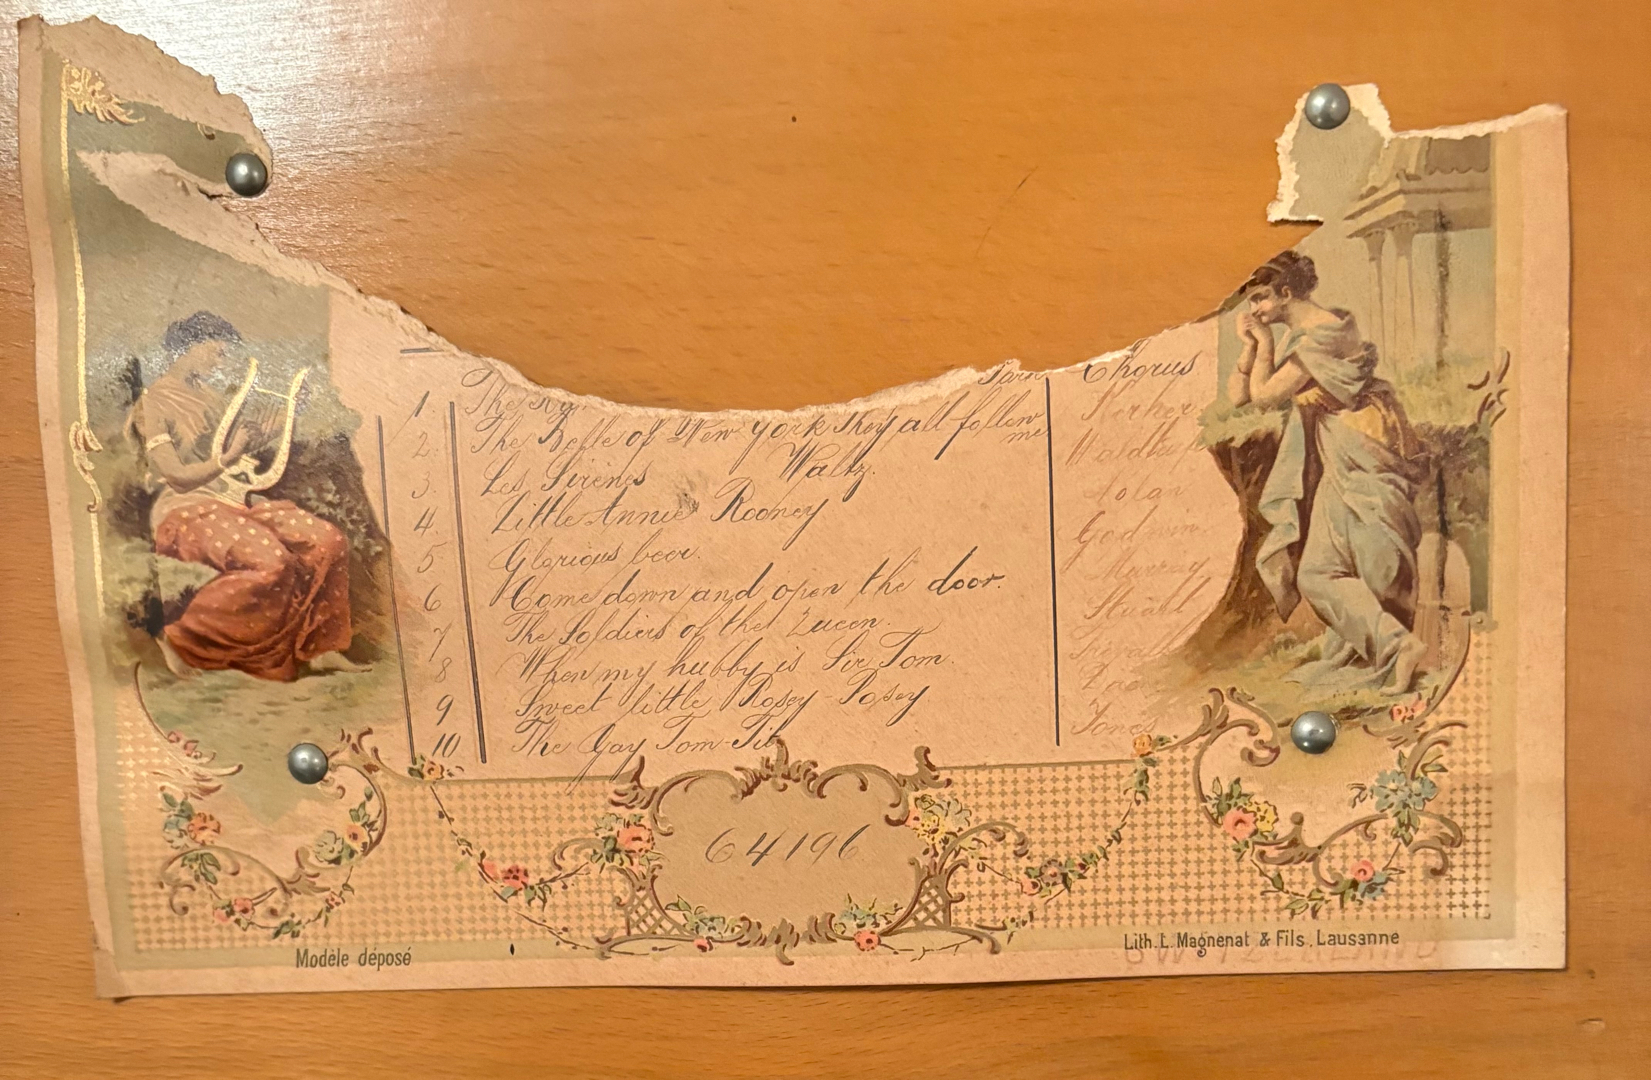 Chorus
1. The
2. The Belle of New York they all follow me Kerker
3. Les Sirènes Waltz. Waldteufel
4. Little Annie Rooney Nolan
5 Glorious beer. Godwin
6 Come down and open the door. Murray
7 The Soldiers of the Queen. Stuart
8 When my hubby is Sir Tom.
9 Sweet little Rosey-Posey
10 The Gay Tom-Tit Jones
64196
Modèle déposé
Lith. L. Magnenat & Fils, Lausanne
SWITZERLAND